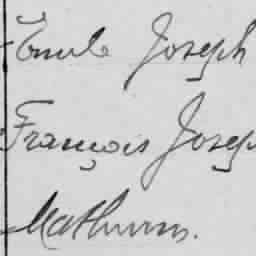 Emile Joseph
François Joseph
Mathurin.